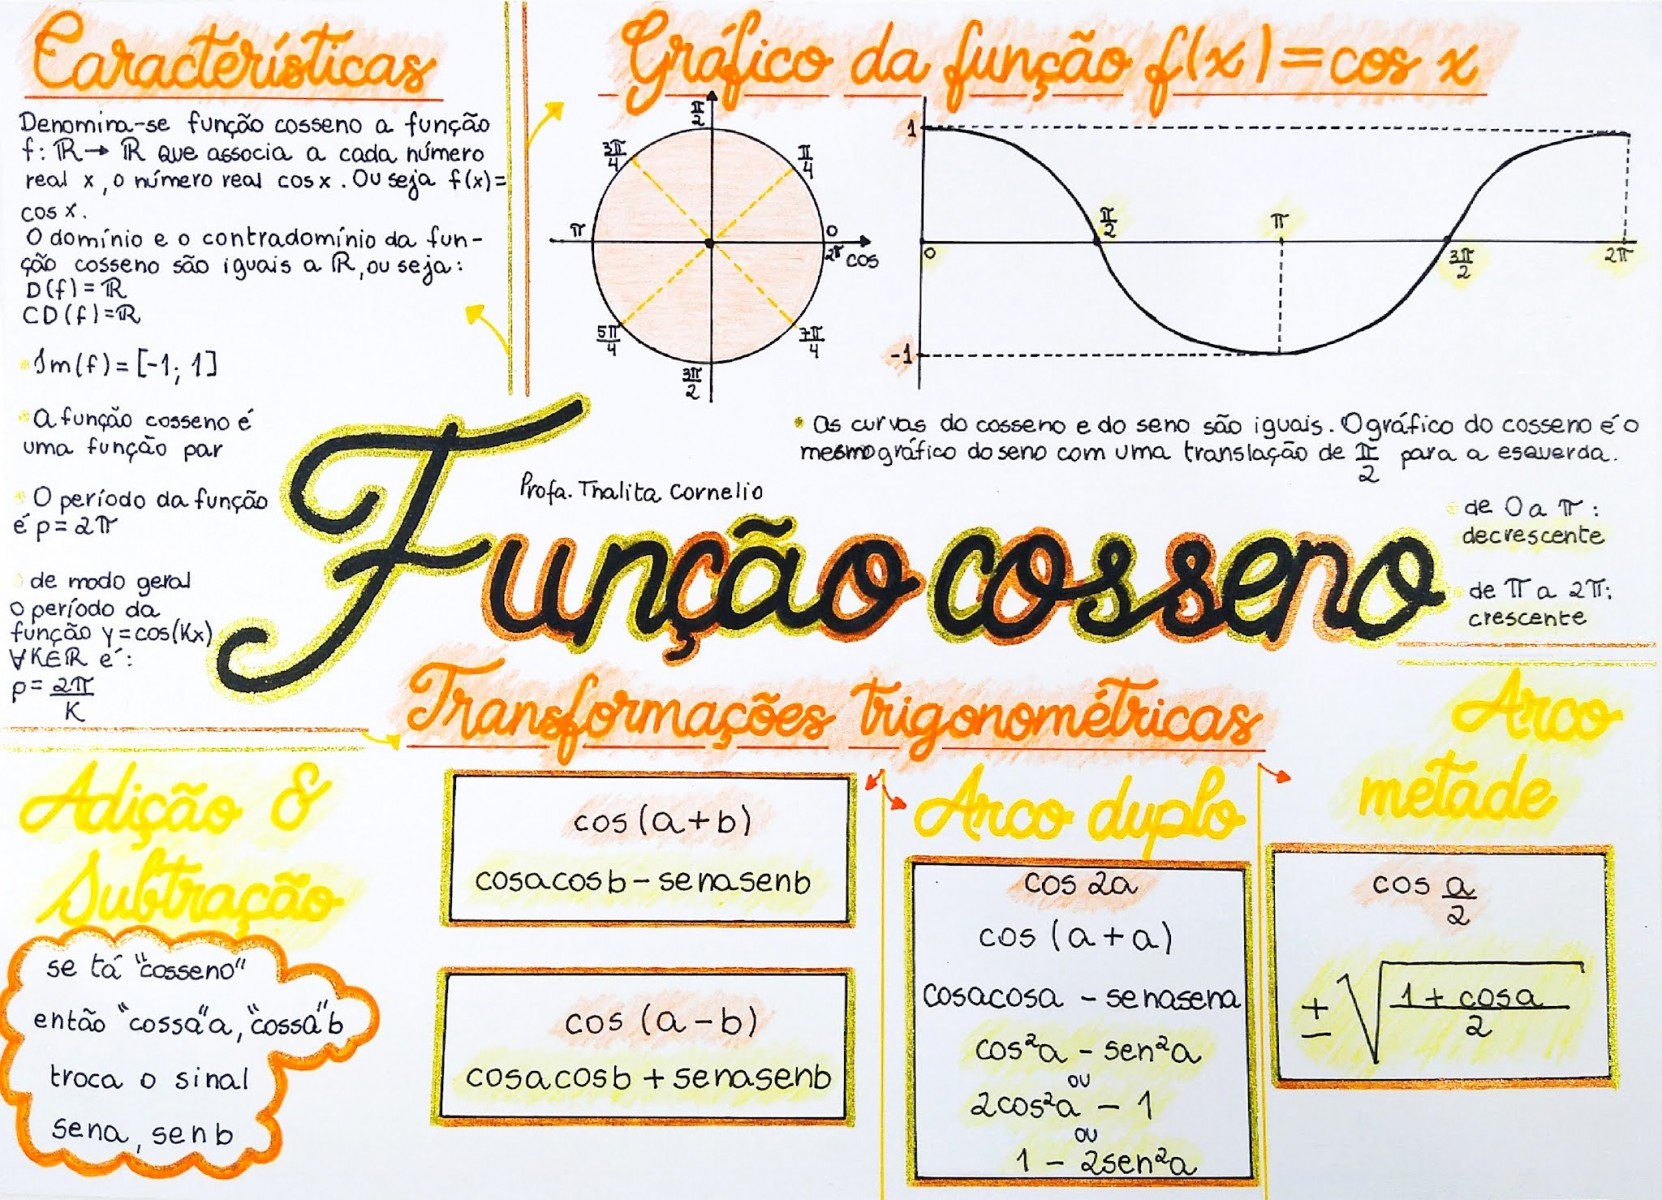 Características
Denomina-se função cosseno a função
f: ℝ → ℝ que associa a cada número
real x, o número real cos x. Ou seja f(x)=
cos x.
O domínio e o contradomínio da fun-
ção cosseno são iguais a ℝ, ou seja:
D(f) = ℝ
CD(f) = ℝ
Im(f) = [-1; 1]
A função cosseno é
uma função par
O período da função
é p = 2π
de modo geral
o período da
função y = cos(Kx)
∀K∈ℝ é:
p = 2π/K
Gráfico da função f(x) = cos x
π/2
3π/4
π/4
π
0
2π
cos
5π/4
7π/4
3π/2
1
π/2
π
0
3π/2
2π
-1
As curvas do cosseno e do seno são iguais. O gráfico do cosseno é o
mesmo gráfico do seno com uma translação de π/2 para a esquerda.
de 0 a π:
decrescente
de π a 2π:
crescente
Profa. Thalita Cornelio
Função cosseno
Transformações trigonométricas
Adição &
Subtração
se tá "cosseno"
então "cossa" a, "cossa" b
troca o sinal
sena, senb
cos (a+b)
cosacosb - senasenb
cos (a-b)
cosacosb + senasenb
Arco duplo
cos 2a
cos (a+a)
cosacosa - senasena
cos²a - sen²a
ou
2cos²a - 1
ou
1 - 2sen²a
Arco
metade
cos a/2
± √(1 + cosa/2)